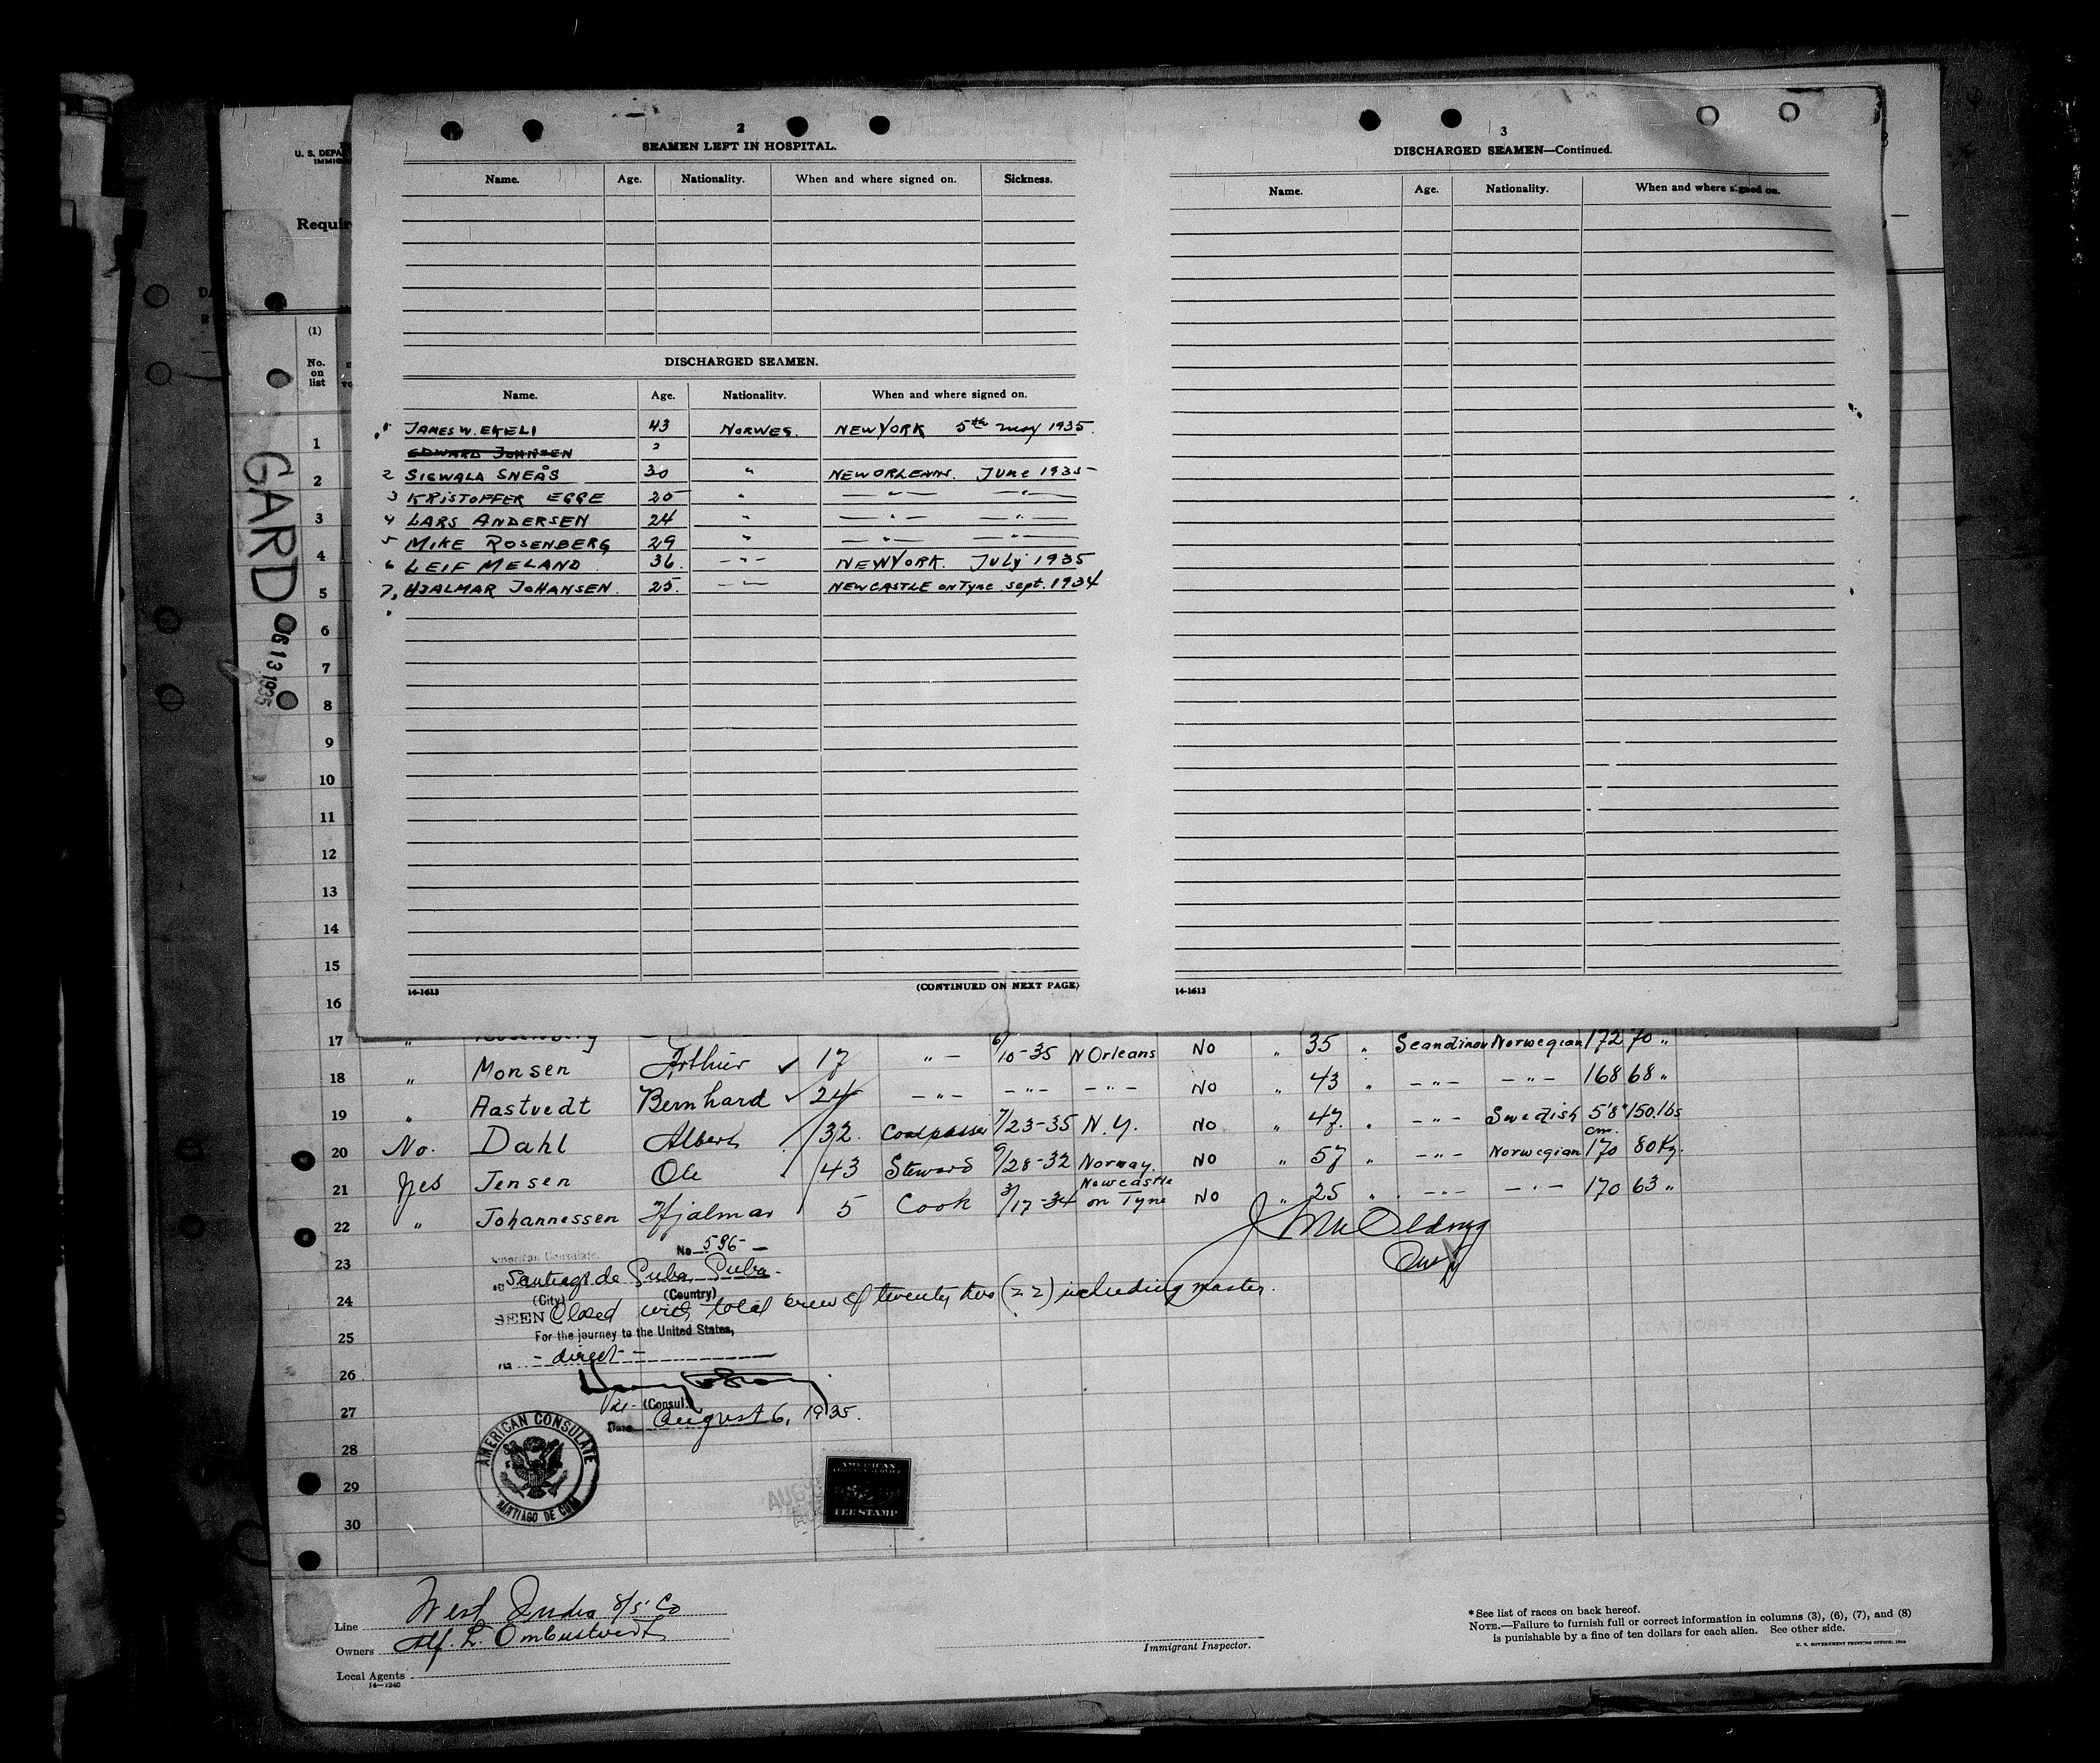 2
SEAMEN LEFT IN HOSPITAL.
Name. Age. Nationality. When and where signed on. Sickness.
DISCHARGED SEAMEN.
Name. Age. Nationality. When and where signed on.
1 JAMES W. EKELI 43 NORWEG. NEW YORK 5th may 1935.
EDWARD JOHNSEN
2 SIGWALA SNEÅS 30 " NEW ORLEANS. June 1935
3 KRISTOFFER EGGE 25 " — " — — " —
4 LARS ANDERSEN 24 " — " — — " —
5 MIKE ROSENBERG 29 " — " — — " —
6 LEIF MELAND 36. - " - NEW YORK. July 1935
7. HJALMAR JOHANSEN. 25. - " - NEWCASTLE ON Tyne Sept. 1934
14-1613
(CONTINUED ON NEXT PAGE)
3
DISCHARGED SEAMEN—Continued.
Name. Age. Nationality. When and where signed on.
14-1613
U. S. DEPA
IMMIG
Requir
(1)
No.
on
list
GARD
13 1935
1
2
3
4
5
6
7
8
9
10
11
12
13
14
15
16
17 " 6/10-35 N Orleans No " 35 " Scandinav Norwegian 172 70 "
18 " Monsen Arthur ✓ 17 " - - " - - " - No " 43 " - " - - " - 168 68 "
19 " Aastvedt Bernhard ✓ 24 - " - 7/23-35 N.Y. No " 47. " - " - Swedish 5'8" 150 lbs
20 No. Dahl Albert 32. Coalpasser 9/28-32 Norway. No " 57 " - " - Norwegian cm. 170 80 Kg.
21 Yes Jensen Ole 43 Steward 3/17-34 Newcastle on Tyne No " 25 " - " - - " - 170 63 "
22 " Johannessen Hjalmar 5 Cook
23
24
25
26
27
28
29
30
American Consulate.
No 596
Santiago de Cuba, Cuba.
(City) (Country)
SEEN Closed with total crew of twenty two (22) including master.
For the journey to the United States,
- direct -
(Consul.)
Date August 6, 1935.
AMERICAN CONSULATE
SANTIAGO DE CUBA
AMERICAN
FEE STAMP
AUG
Line West India S/S Co
Owners Alf. L.
Local Agents
14—1240
Immigrant Inspector.
*See list of races on back hereof.
NOTE.—Failure to furnish full or correct information in columns (3), (6), (7), and (8)
is punishable by a fine of ten dollars for each alien. See other side.
U. S. GOVERNMENT PRINTING OFFICE: